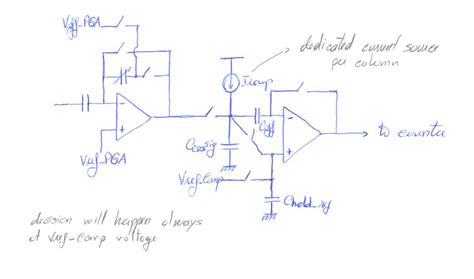 Voff_PGA
dedicated current source
per column
Iramp
Coff
to counter
Vref_PGA
Vref_comp
Chold_ref
decision will happen always
at Vref-comp voltage